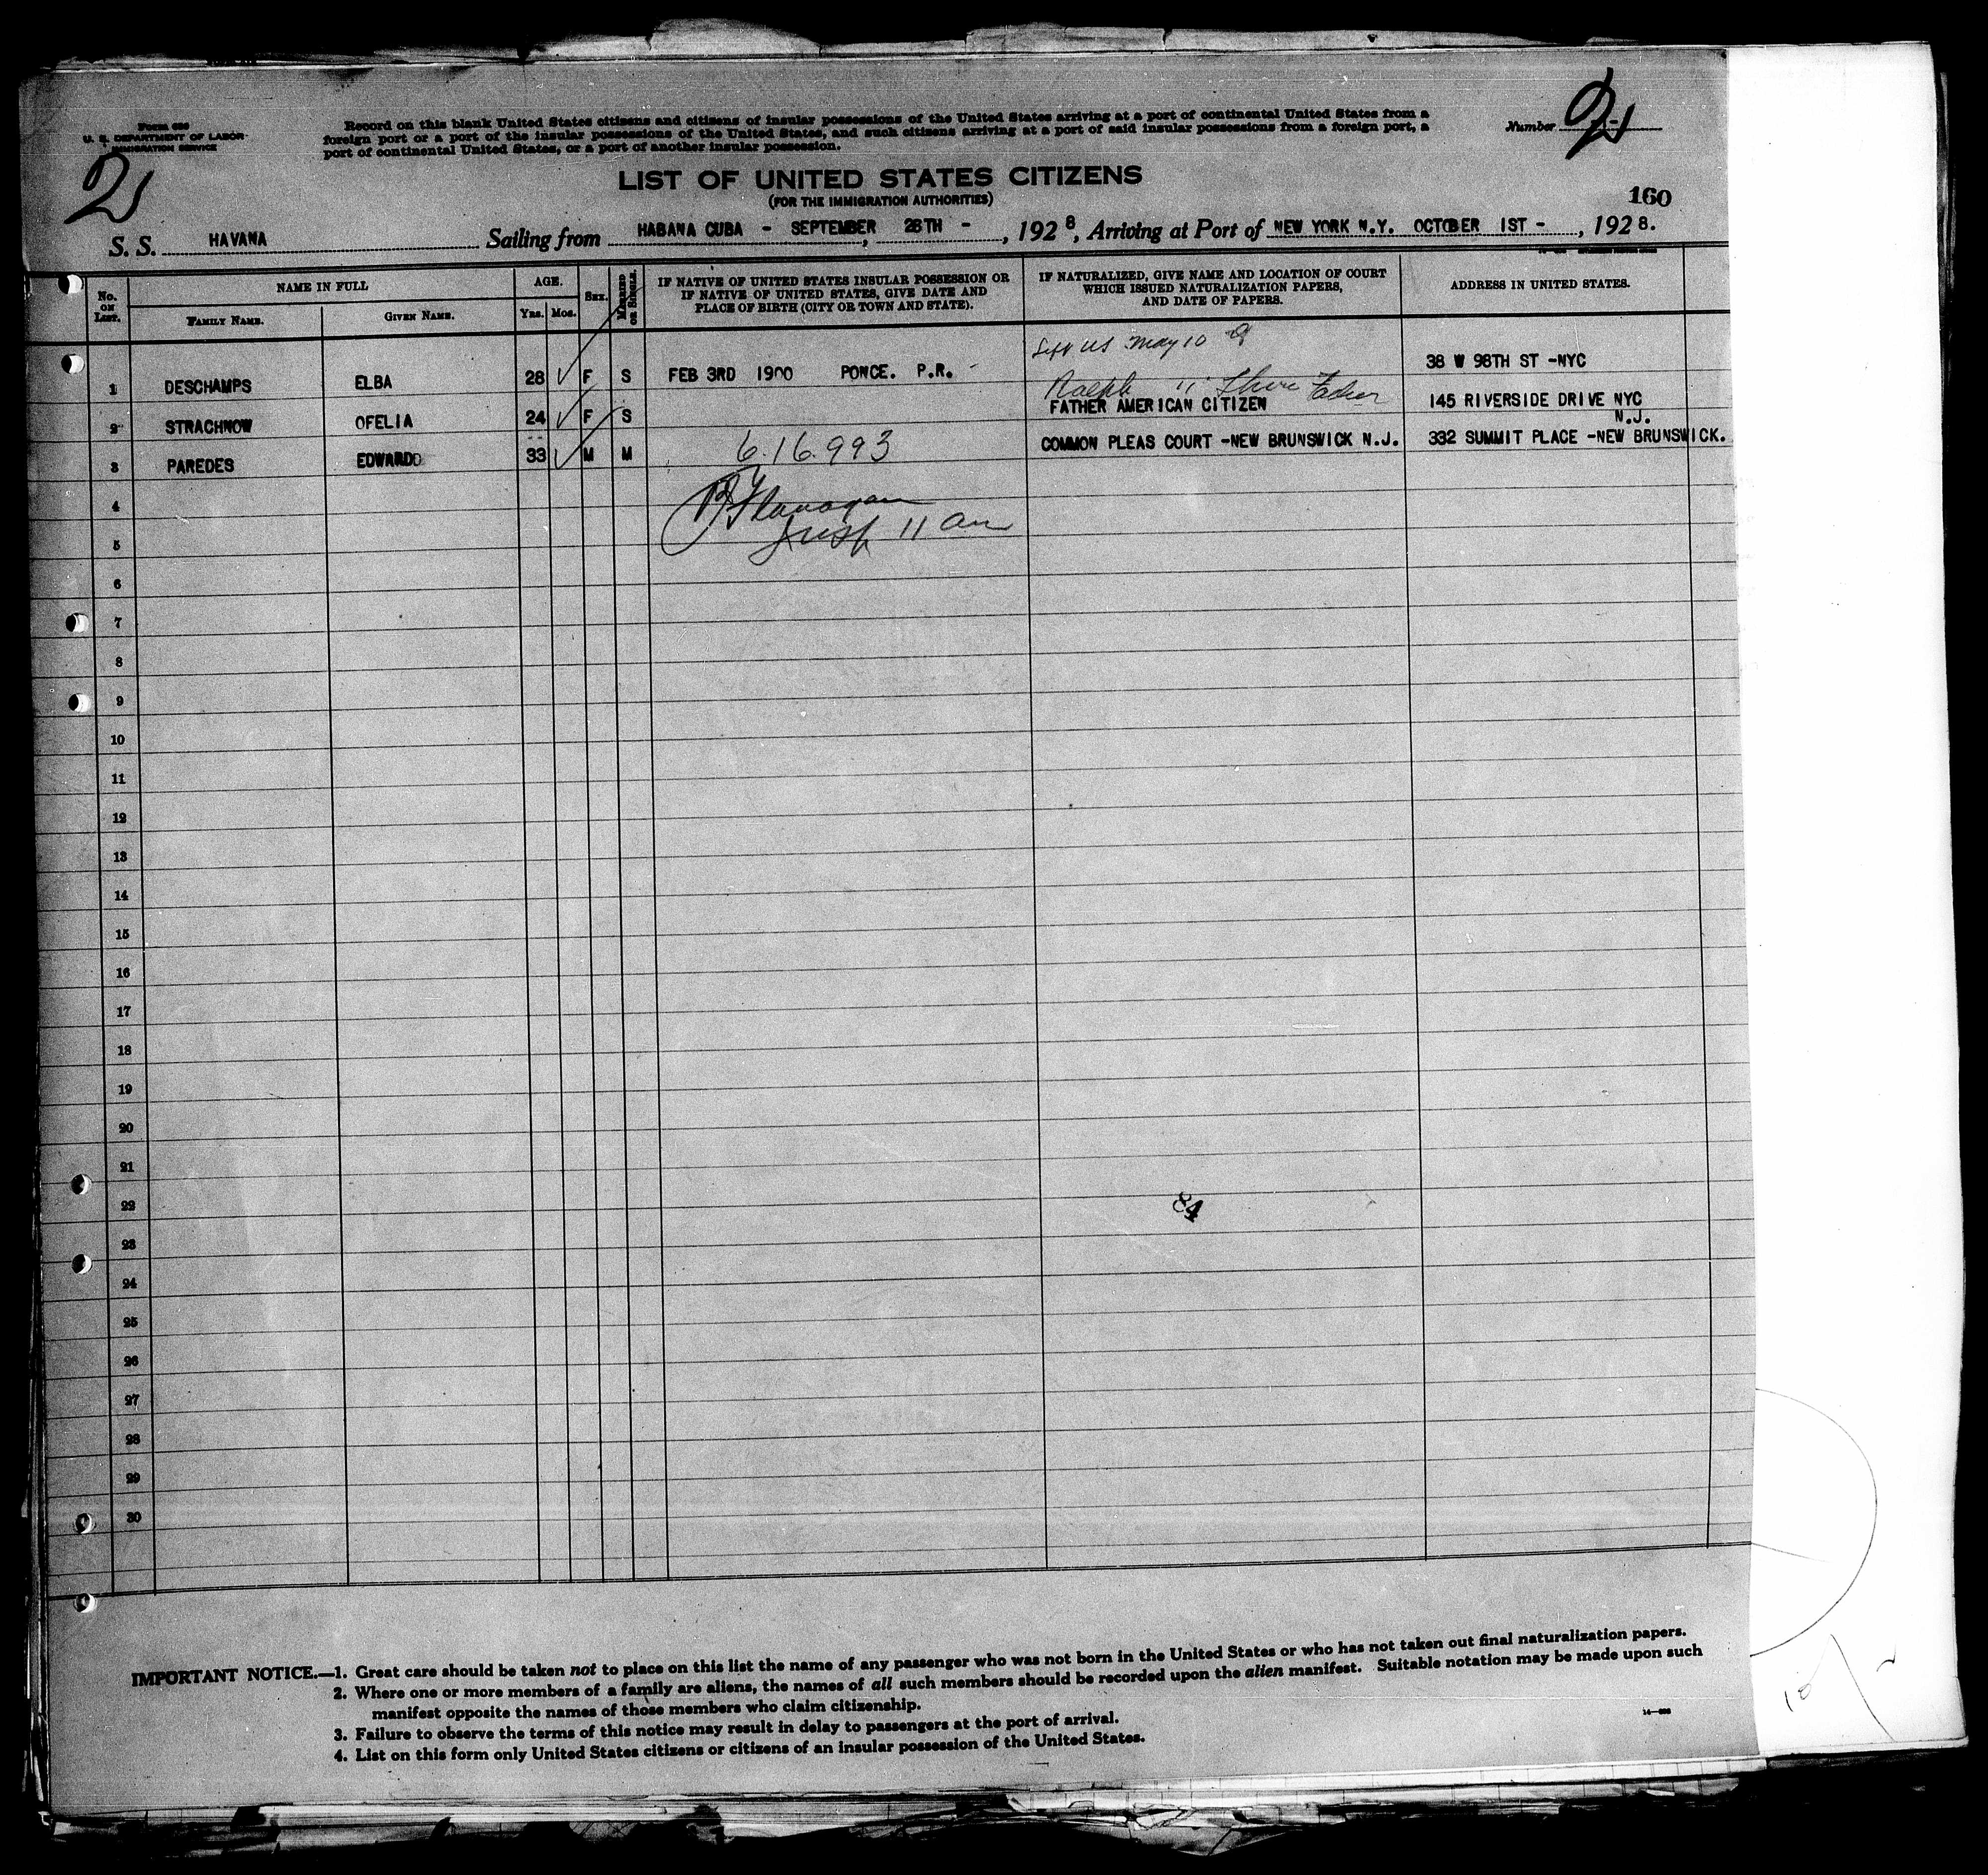 Form 630
U. S. DEPARTMENT OF LABOR
IMMIGRATION SERVICE
Record on this blank United States citizens and citizens of insular possessions of the United States arriving at a port of continental United States from a
foreign port or a port of the insular possessions of the United States, and such citizens arriving at a port of said insular possessions from a foreign port, a
port of continental United States, or a port of another insular possession.
Number 2
2
LIST OF UNITED STATES CITIZENS
(FOR THE IMMIGRATION AUTHORITIES)
160
S. S. HAVANA Sailing from HABANA CUBA - SEPTEMBER 28TH - , 1928, Arriving at Port of NEW YORK N.Y. OCTOBER 1ST - , 1928.
No. on List. NAME IN FULL AGE. Sex. Married or Single. IF NATIVE OF UNITED STATES INSULAR POSSESSION OR IF NATIVE OF UNITED STATES, GIVE DATE AND PLACE OF BIRTH (CITY OR TOWN AND STATE). IF NATURALIZED, GIVE NAME AND LOCATION OF COURT WHICH ISSUED NATURALIZATION PAPERS, AND DATE OF PAPERS. ADDRESS IN UNITED STATES.
Family Name. Given Name. Yrs. Mos.
US May 10
1 DESCHAMPS ELBA 28 F S FEB 3RD 1900 PONCE. P.R. - 38 W 98TH ST -NYC
Ralph Father
2 STRACHNOW OFELIA 24 F S FATHER AMERICAN CITIZEN 145 RIVERSIDE DRIVE NYC
N.J.
3 PAREDES EDWARDO 33 M M 6.16.993 COMMON PLEAS COURT -NEW BRUNSWICK N.J. 332 SUMMIT PLACE -NEW BRUNSWICK.
4 Flanagan
5 Insp 11 am
6
7
8
9
10
11
12
13
14
15
16
17
18
19
20
21
22 84
23
24
25
26
27
28
29
30
IMPORTANT NOTICE.—1. Great care should be taken not to place on this list the name of any passenger who was not born in the United States or who has not taken out final naturalization papers.
2. Where one or more members of a family are aliens, the names of all such members should be recorded upon the alien manifest. Suitable notation may be made upon such
manifest opposite the names of those members who claim citizenship.
3. Failure to observe the terms of this notice may result in delay to passengers at the port of arrival.
4. List on this form only United States citizens or citizens of an insular possession of the United States.